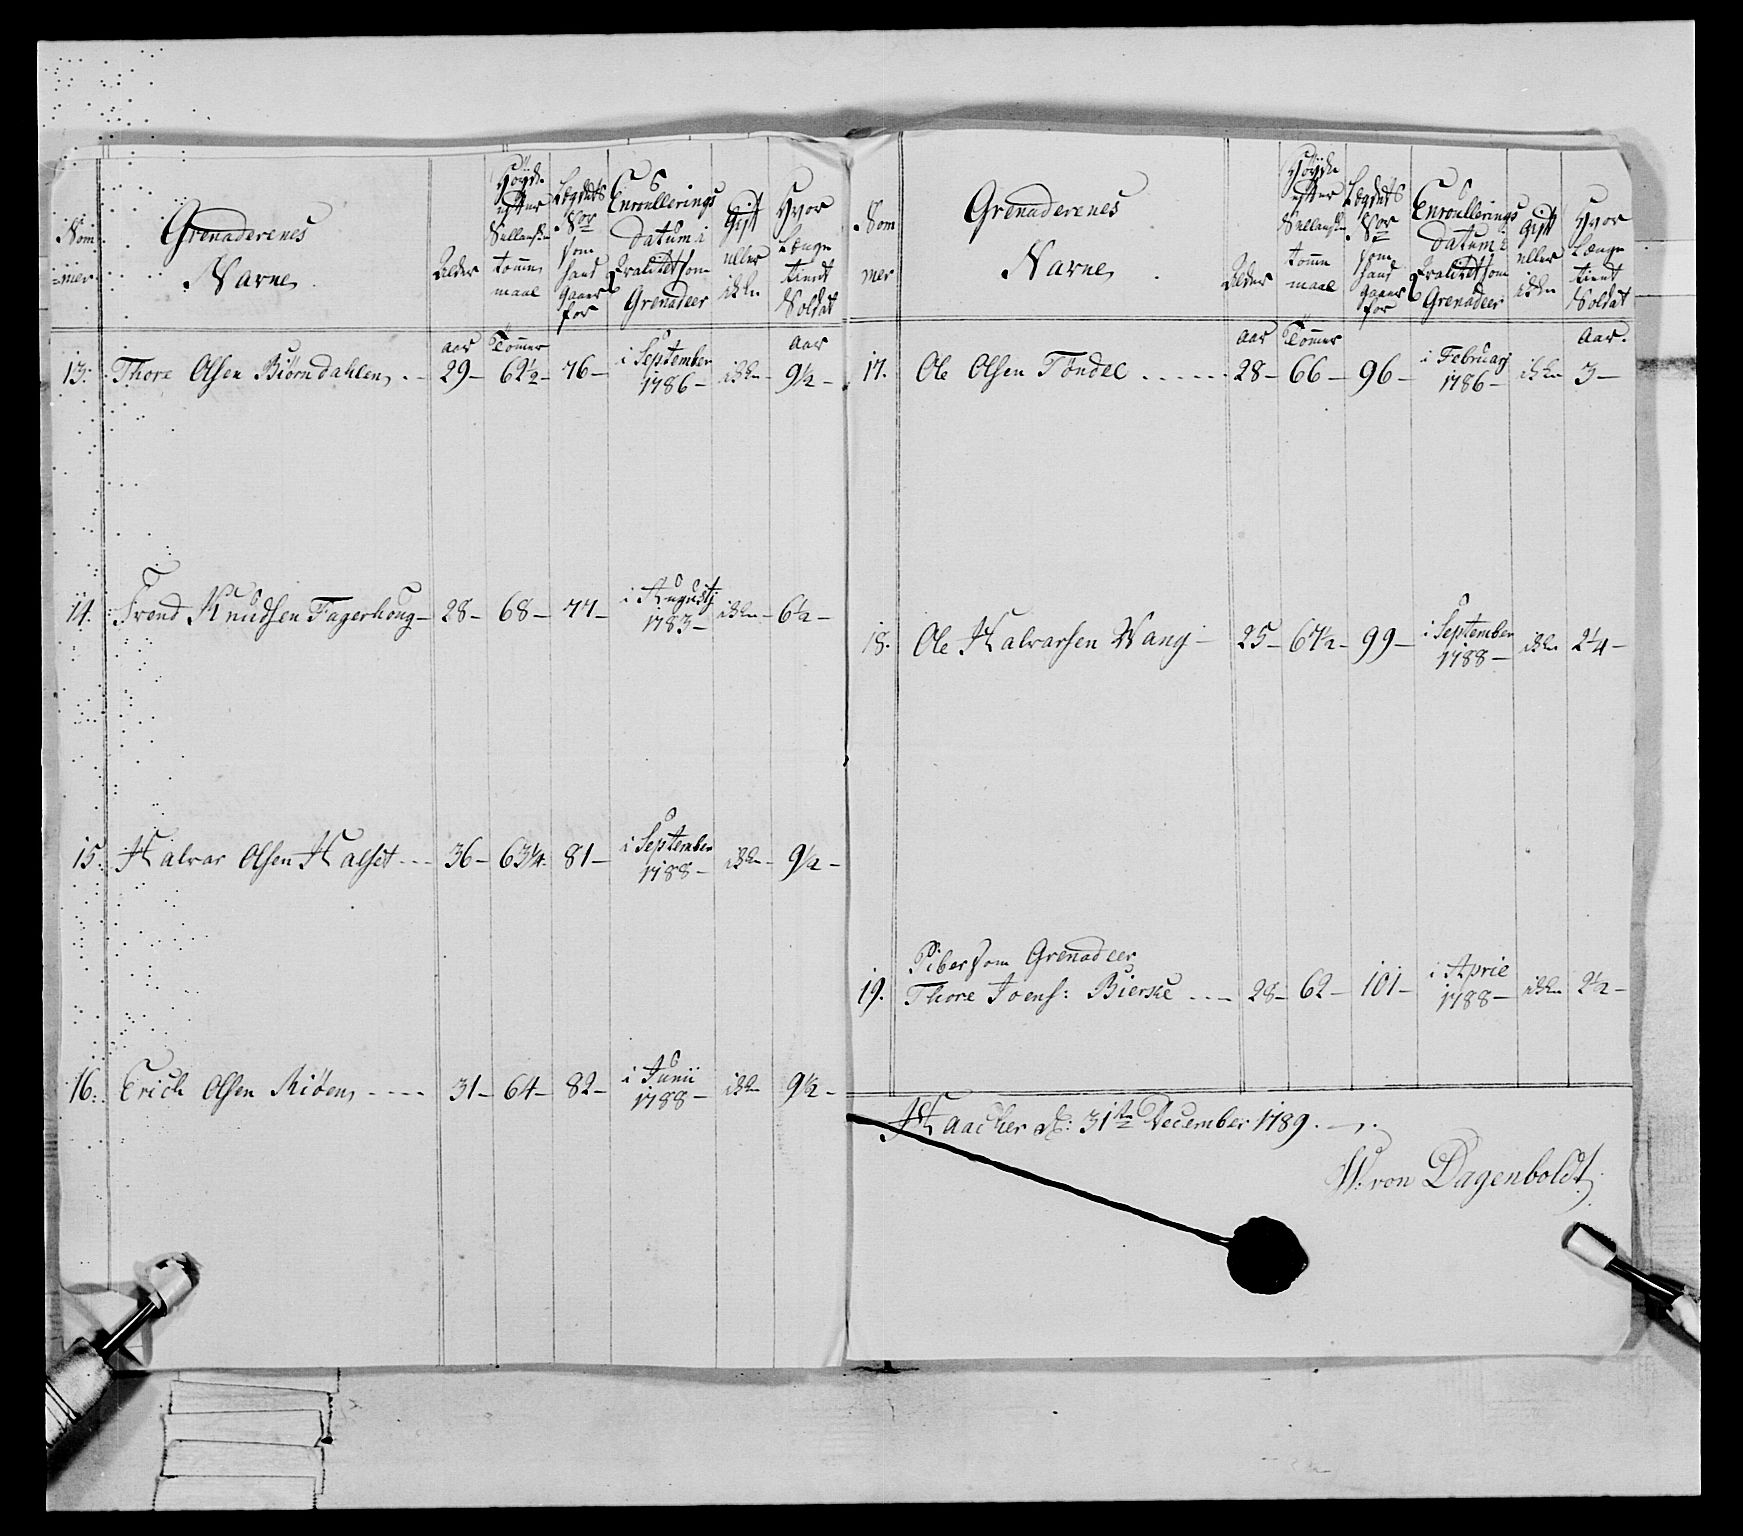 Nom
=mer.
Grenaderenes
Navne
Alder
Höyde
efter
Sællandsk
tomme
maal
Lægdets
Nor
som
hand
gaaer
for
Enroullerings
datum i
Qvalitet som
Grenadeer
Gift
eller
ikke
Hvor
Længe
tient
Soldat
aar Tommer aar
13. Thore Olsen Biörndahlen 29 62½ 76 i September 1786 ikke 9½
14. Trond Knudsen Fagerhoug 28 68 77 i Augustj 1783 ikke 6½
15. Halvar Olsen Halset 36 63¼ 81 i September 1788 ikke 9½
16. Erich Olsen Riöen 31 64 82 i Junii 1788 ikke 9½
Nom
mer
Grenaderenes
Navne
Alder
Höyde
efter
Sællandsk
tomme
maal
Lægdets
Nor
som
hand
gaaer
for
Enroullerings
datum i
Qvalitet som
Grenadeer
Gift
eller
ikke
Hvor
Længe
tient
Soldat
aar Tommer aar.
17. Ole Olsen Töndel 28 66 96 i Februarj 1786 ikke 3
18. Ole Halvarsen Wang 25 67½ 99 i September 1788 ikke 2¼
Piber som Grenadeer
19. Thore Joens: Bierske 28 62 101 i April 1788 ikke 2½
Haacker d: 31te December 1789.
W: von Dagenboldt